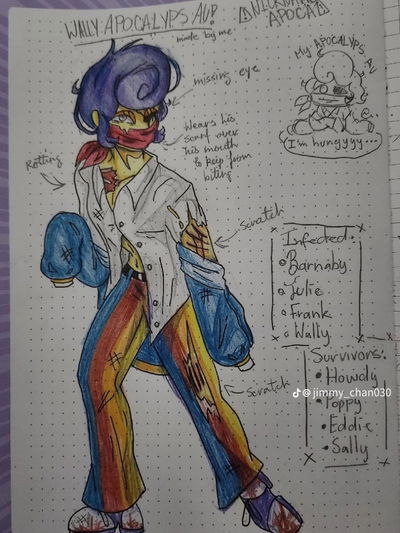 WALLY APOCALYPS AU!
made by me
⚠NICKNAME
APOCA⚠
missing eye
My APOCALYPS AU
Wears his
scarf over
his mouth
to keep from
biting
I'm hungyyy...
Rotting
scratch
Infected:
Barnaby
Julie
Frank
Wally
Survivors:
Howdy
Poppy
Eddie
Sally
scratch
@jimmy_chan030